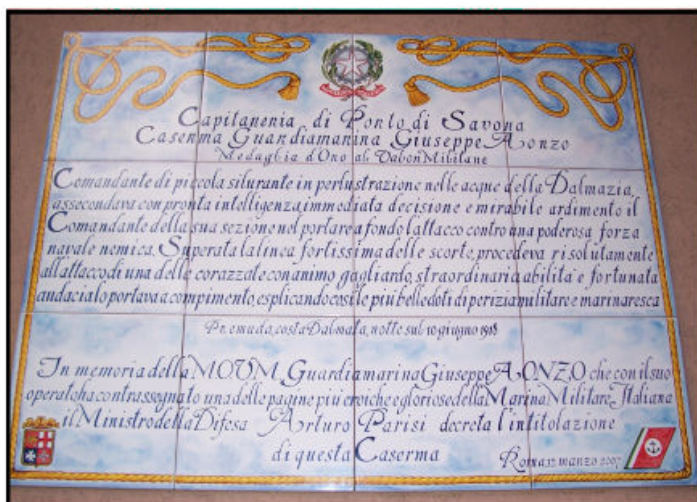 Capitaneria di Porto di Savona
Caserma Guardiamarina Giuseppe Aonzo
Medaglia d'Oro al Valor Militare
Comandante di piccola silurante in perlustrazione nelle acque della Dalmazia,
assecondava con pronta intelligenza, immediata decisione e mirabile ardimento il
Comandante della sua sezione nel portare a fondo l'attacco contro una poderosa forza
navale nemica. Superata la linea fortissima delle scorte, procedeva risolutamente
all'attacco di una delle corazzate con animo gagliardo, straordinaria abilità e fortunata
audacia lo portava a compimento, esplicando così le più belle doti di perizia militare e marinaresca
Premuda, costa Dalmata, notte sul 10 giugno 1918
In memoria della M.O.V.M. Guardiamarina Giuseppe AONZO che con il suo
operato ha contrassegnato una delle pagine più eroiche e gloriose della Marina Militare Italiana
il Ministro della Difesa Arturo Parisi decreta l'intitolazione
di questa Caserma
Roma, 12 marzo 2007